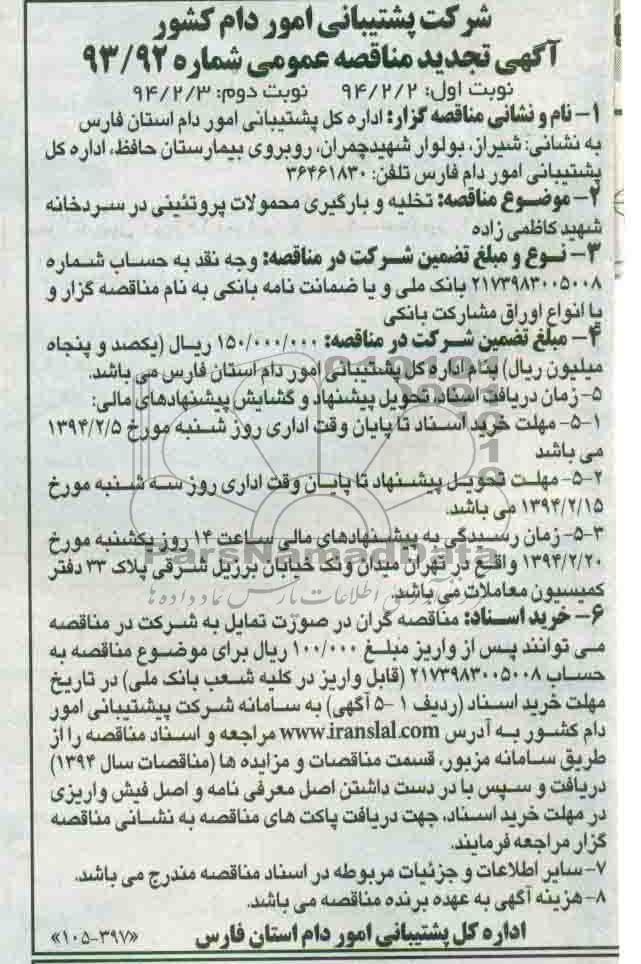 شرکت پشتیبانی امور دام کشور
آگهی تجدید مناقصه عمومی شماره ۹۳/۹۲
نوبت اول: ۹۴/۲/۲ نوبت دوم: ۹۴/۲/۳
۱- نام و نشانی مناقصه گزار: اداره کل پشتیبانی امور دام استان فارس
به نشانی: شیراز، بولوار شهیدچمران، روبروی بیمارستان حافظ، اداره کل
پشتیبانی امور دام فارس تلفن: ۳۶۴۶۱۸۳۰
۲- موضوع مناقصه: تخلیه و بارگیری محمولات پروتئینی در سردخانه
شهید کاظمی زاده
۳- نوع و مبلغ تضمین شرکت در مناقصه: وجه نقد به حساب شماره
۲۱۷۳۹۸۳۰۰۵۰۰۸ بانک ملی و یا ضمانت نامه بانکی به نام مناقصه گزار و
یا انواع اوراق مشارکت بانکی
۴- مبلغ تضمین شرکت در مناقصه: ۱۵۰/۰۰۰/۰۰۰ ریال (یکصد و پنجاه
میلیون ریال) بنام اداره کل پشتیبانی امور دام استان فارس می باشد.
۵- زمان دریافت اسناد، تحویل پیشنهاد و گشایش پیشنهادهای مالی:
۵-۱- مهلت خرید اسناد تا پایان وقت اداری روز شنبه مورخ ۱۳۹۴/۲/۵
می باشد
۵-۲- مهلت تحویل پیشنهاد تا پایان وقت اداری روز سه شنبه مورخ
۱۳۹۴/۲/۱۵ می باشد.
۵-۳- زمان رسیدگی به پیشنهادهای مالی ساعت ۱۴ روز یکشنبه مورخ
۱۳۹۴/۲/۲۰ واقع در تهران میدان ونک خیابان برزیل شرقی پلاک ۳۳ دفتر
کمیسیون معاملات می باشد.
۶- خرید اسناد: مناقصه گران در صورت تمایل به شرکت در مناقصه
می توانند پس از واریز مبلغ ۱۰۰/۰۰۰ ریال برای موضوع مناقصه به
حساب ۲۱۷۳۹۸۳۰۰۵۰۰۸ (قابل واریز در کلیه شعب بانک ملی) در تاریخ
مهلت خرید اسناد (ردیف ۱-۵ آگهی) به سامانه شرکت پیشتیبانی امور
دام کشور به آدرس www.iranslal.com مراجعه و اسناد مناقصه را از
طریق سامانه مزبور، قسمت مناقصات و مزایده ها (مناقصات سال ۱۳۹۴)
دریافت و سپس با در دست داشتن اصل معرفی نامه و اصل فیش واریزی
در مهلت خرید اسناد، جهت دریافت پاکت های مناقصه به نشانی مناقصه
گزار مراجعه فرمایند.
۷- سایر اطلاعات و جزئیات مربوطه در اسناد مناقصه مندرج می باشد.
۸- هزینه آگهی به عهده برنده مناقصه می باشد.
اداره کل پشتیبانی امور دام استان فارس «۱۰۵-۳۹۷»
ParsNamadData